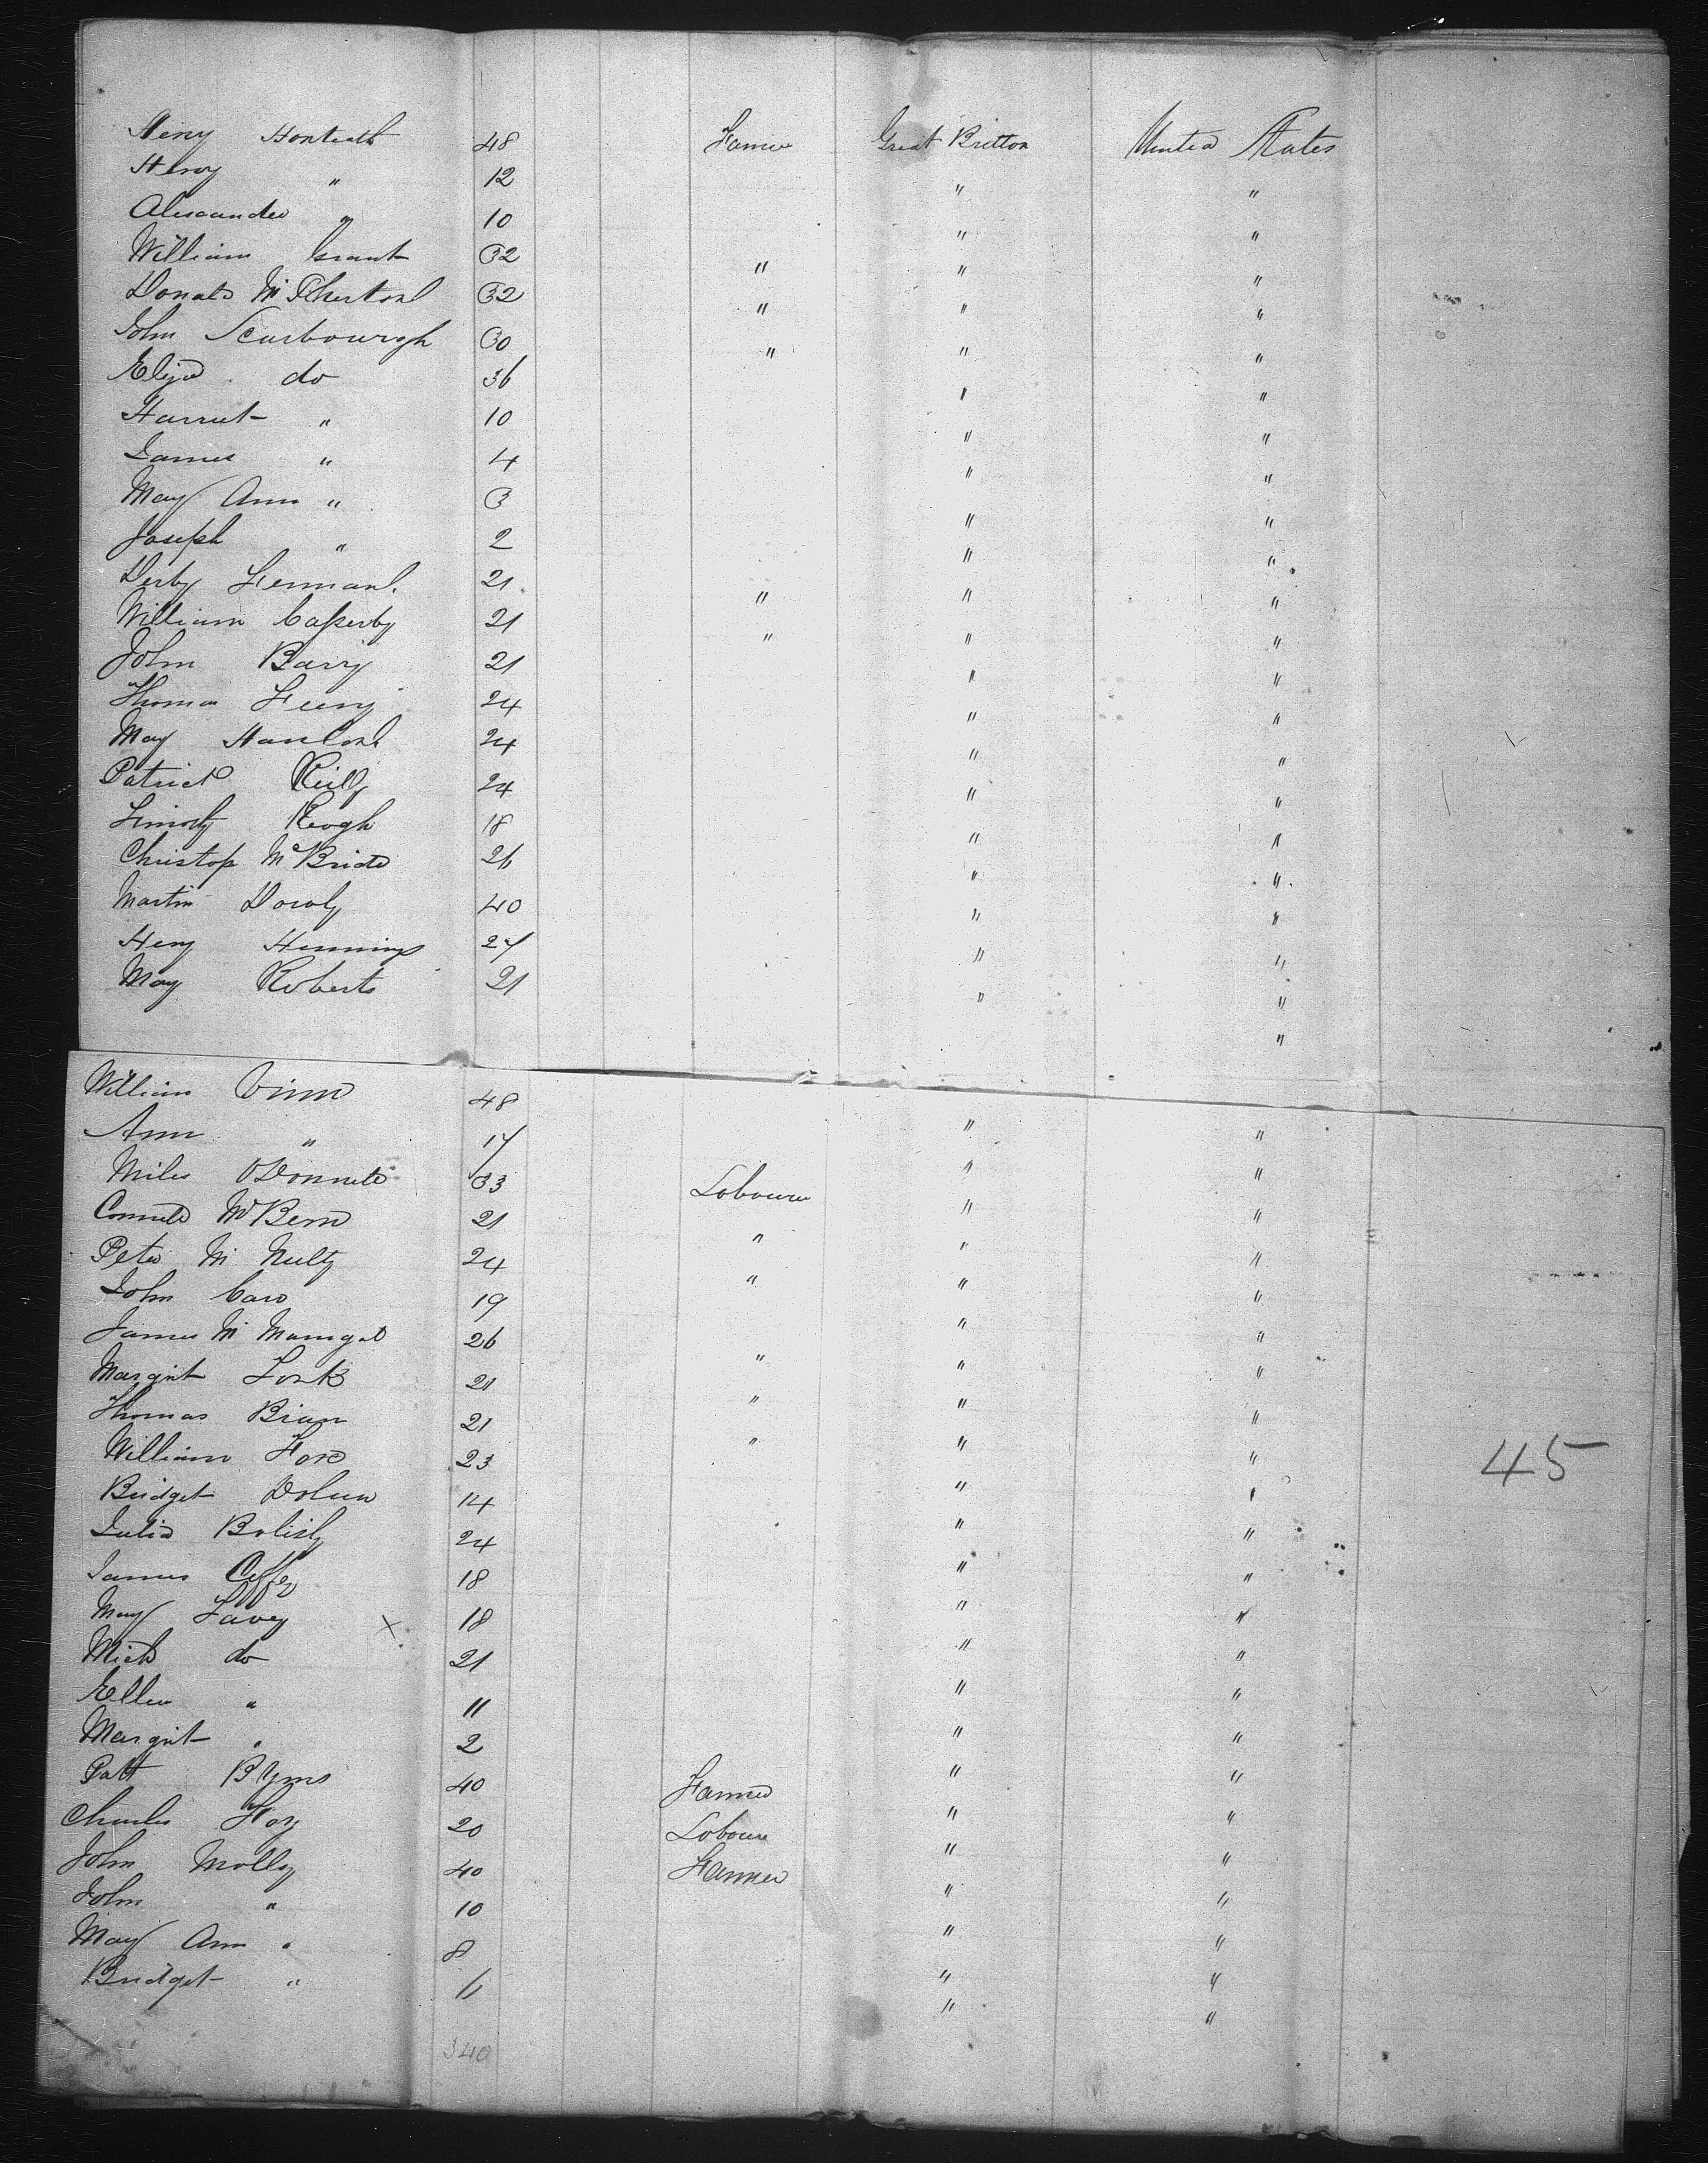 Heny Honteath 48 Farmer Great Britton United States
Henry " 12 " "
Alexander " 10 " "
William Grant 32 " " "
Donald Mc Pherson 32 " " "
John Scarbourogh 30 " " "
Eliza do 36 " "
Harriet " 10 " "
James " 4 " "
May Ann " 3 " "
Joseph " 2 " "
Derby 21 " " "
William Casserby 21 " " "
John Barry 21 " "
Thomas Feeny 24 " "
May Hanlon 24 " "
Patrick Reilly 24 " "
Timothy Keogh 18 " "
Christop McBride 26 " "
Martin Dowly 40 " "
Heny Hennings 27 " "
May Roberts 21 " "
"
William 48 " "
Ann " 17 " "
Miles ODonnell 33 Labourer " "
Connell 21 " " "
Peter Mc Nulty 24 " " "
John Carr 19 " "
James Mc 26 " " "
Margrit 21 " " "
Thomas Brian 21 " " "
William Fox 23 " "
Bridget Dolan 14 " "
Julia 24 " "
James Coffey 18 " "
May Lavey x 18 " "
Mich do 21 " "
Ellen " 11 " "
Margrit " 2 " "
Patt Byrns 40 Farmer " "
Charles Foy 20 Labourer " "
John Molloy 40 Farmer " "
John " 10 " "
May Ann " 8 " "
Bridget " 11 " "
45
340